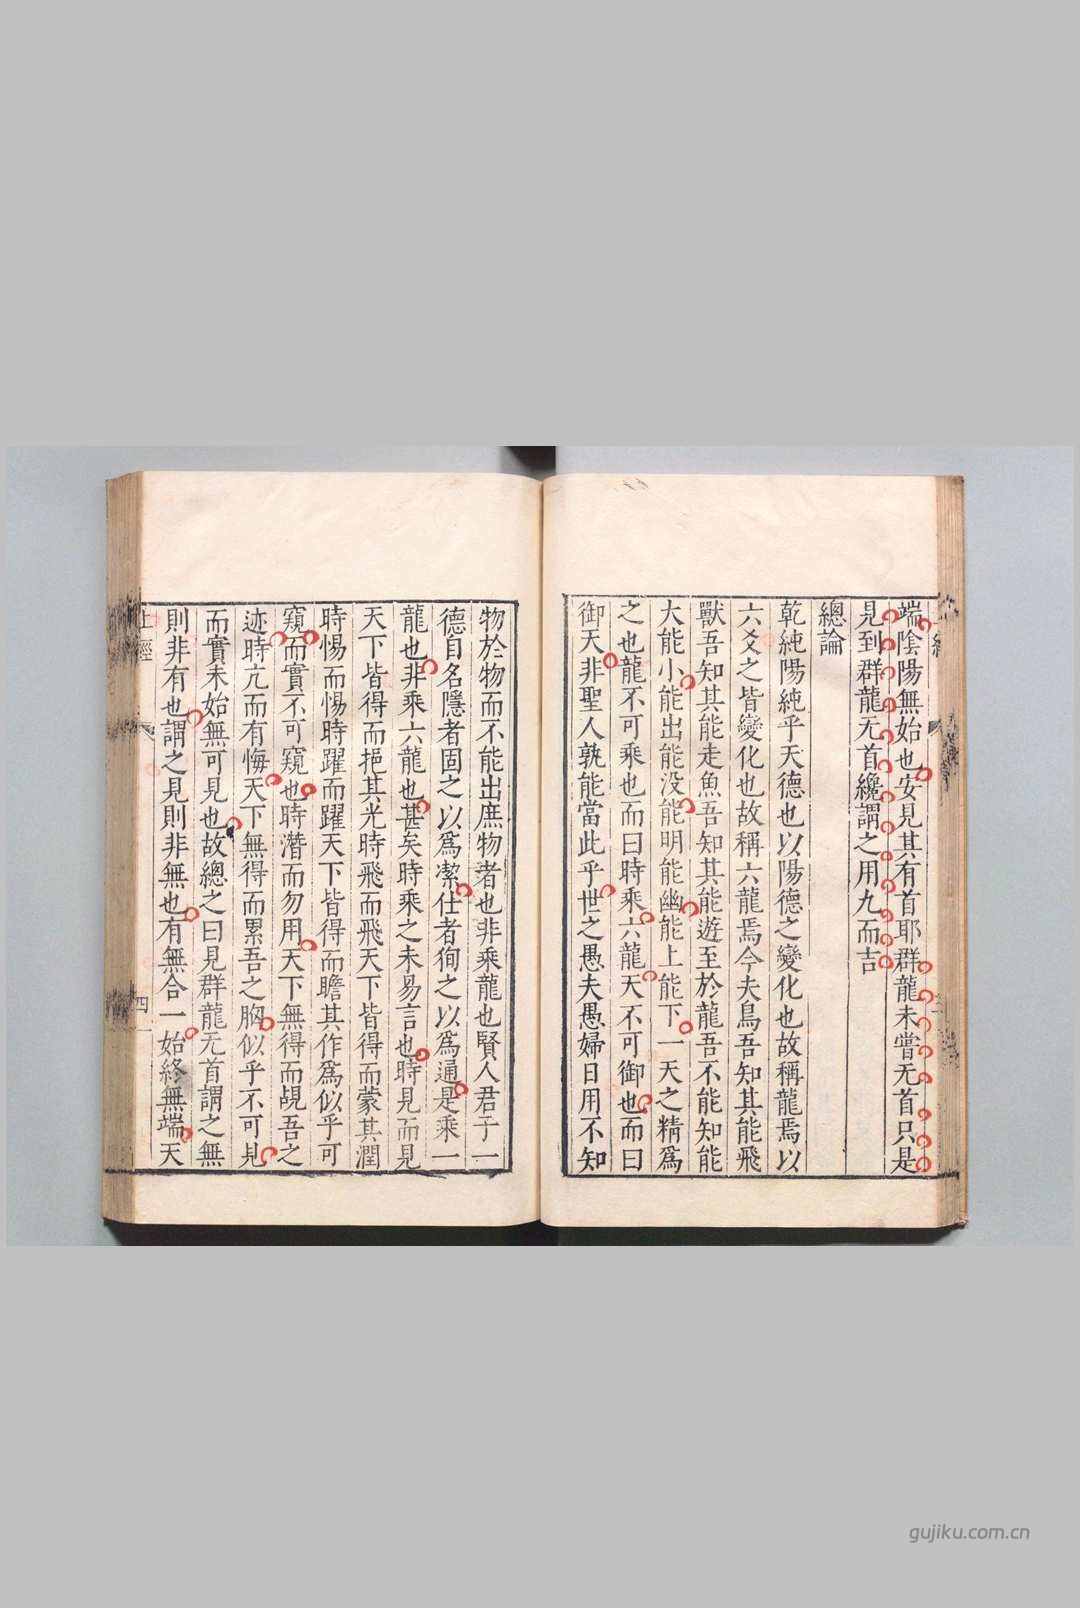 端陰陽無始也安見其有首耶群龍未嘗无首只是
見到群龍无首纔謂之用九而吉
總論
乾純陽純乎天德也以陽德之變化也故稱龍焉以
六爻之皆變化也故稱六龍焉今夫鳥吾知其能飛
獸吾知其能走魚吾知其能遊至於龍吾不能知能
大能小能出能没能明能幽能上能下一天之精爲
之也龍不可乘也而曰時乘六龍天不可御也而曰
御天非聖人孰能當此乎世之愚夫愚婦日用不知
物於物而不能出庶物者也非乘龍也賢人君子一
德自名隱者固之以爲潔仕者徇之以爲通是乘一
龍也非乘六龍也甚矣時乘之未易言也時見而見
天下皆得而挹其光時飛而飛天下皆得而蒙其潤
時惕而惕時躍而躍天下皆得而瞻其作爲似乎可
窺而實不可窺也時潛而勿用天下無得而覘吾之
迹時亢而有悔天下無得而累吾之胸似乎不可見
而實未始無可見也故總之曰見群龍无首謂之無
則非有也謂之見則非無也有無合一始終無端天
上經
四
gujiku.com.cn